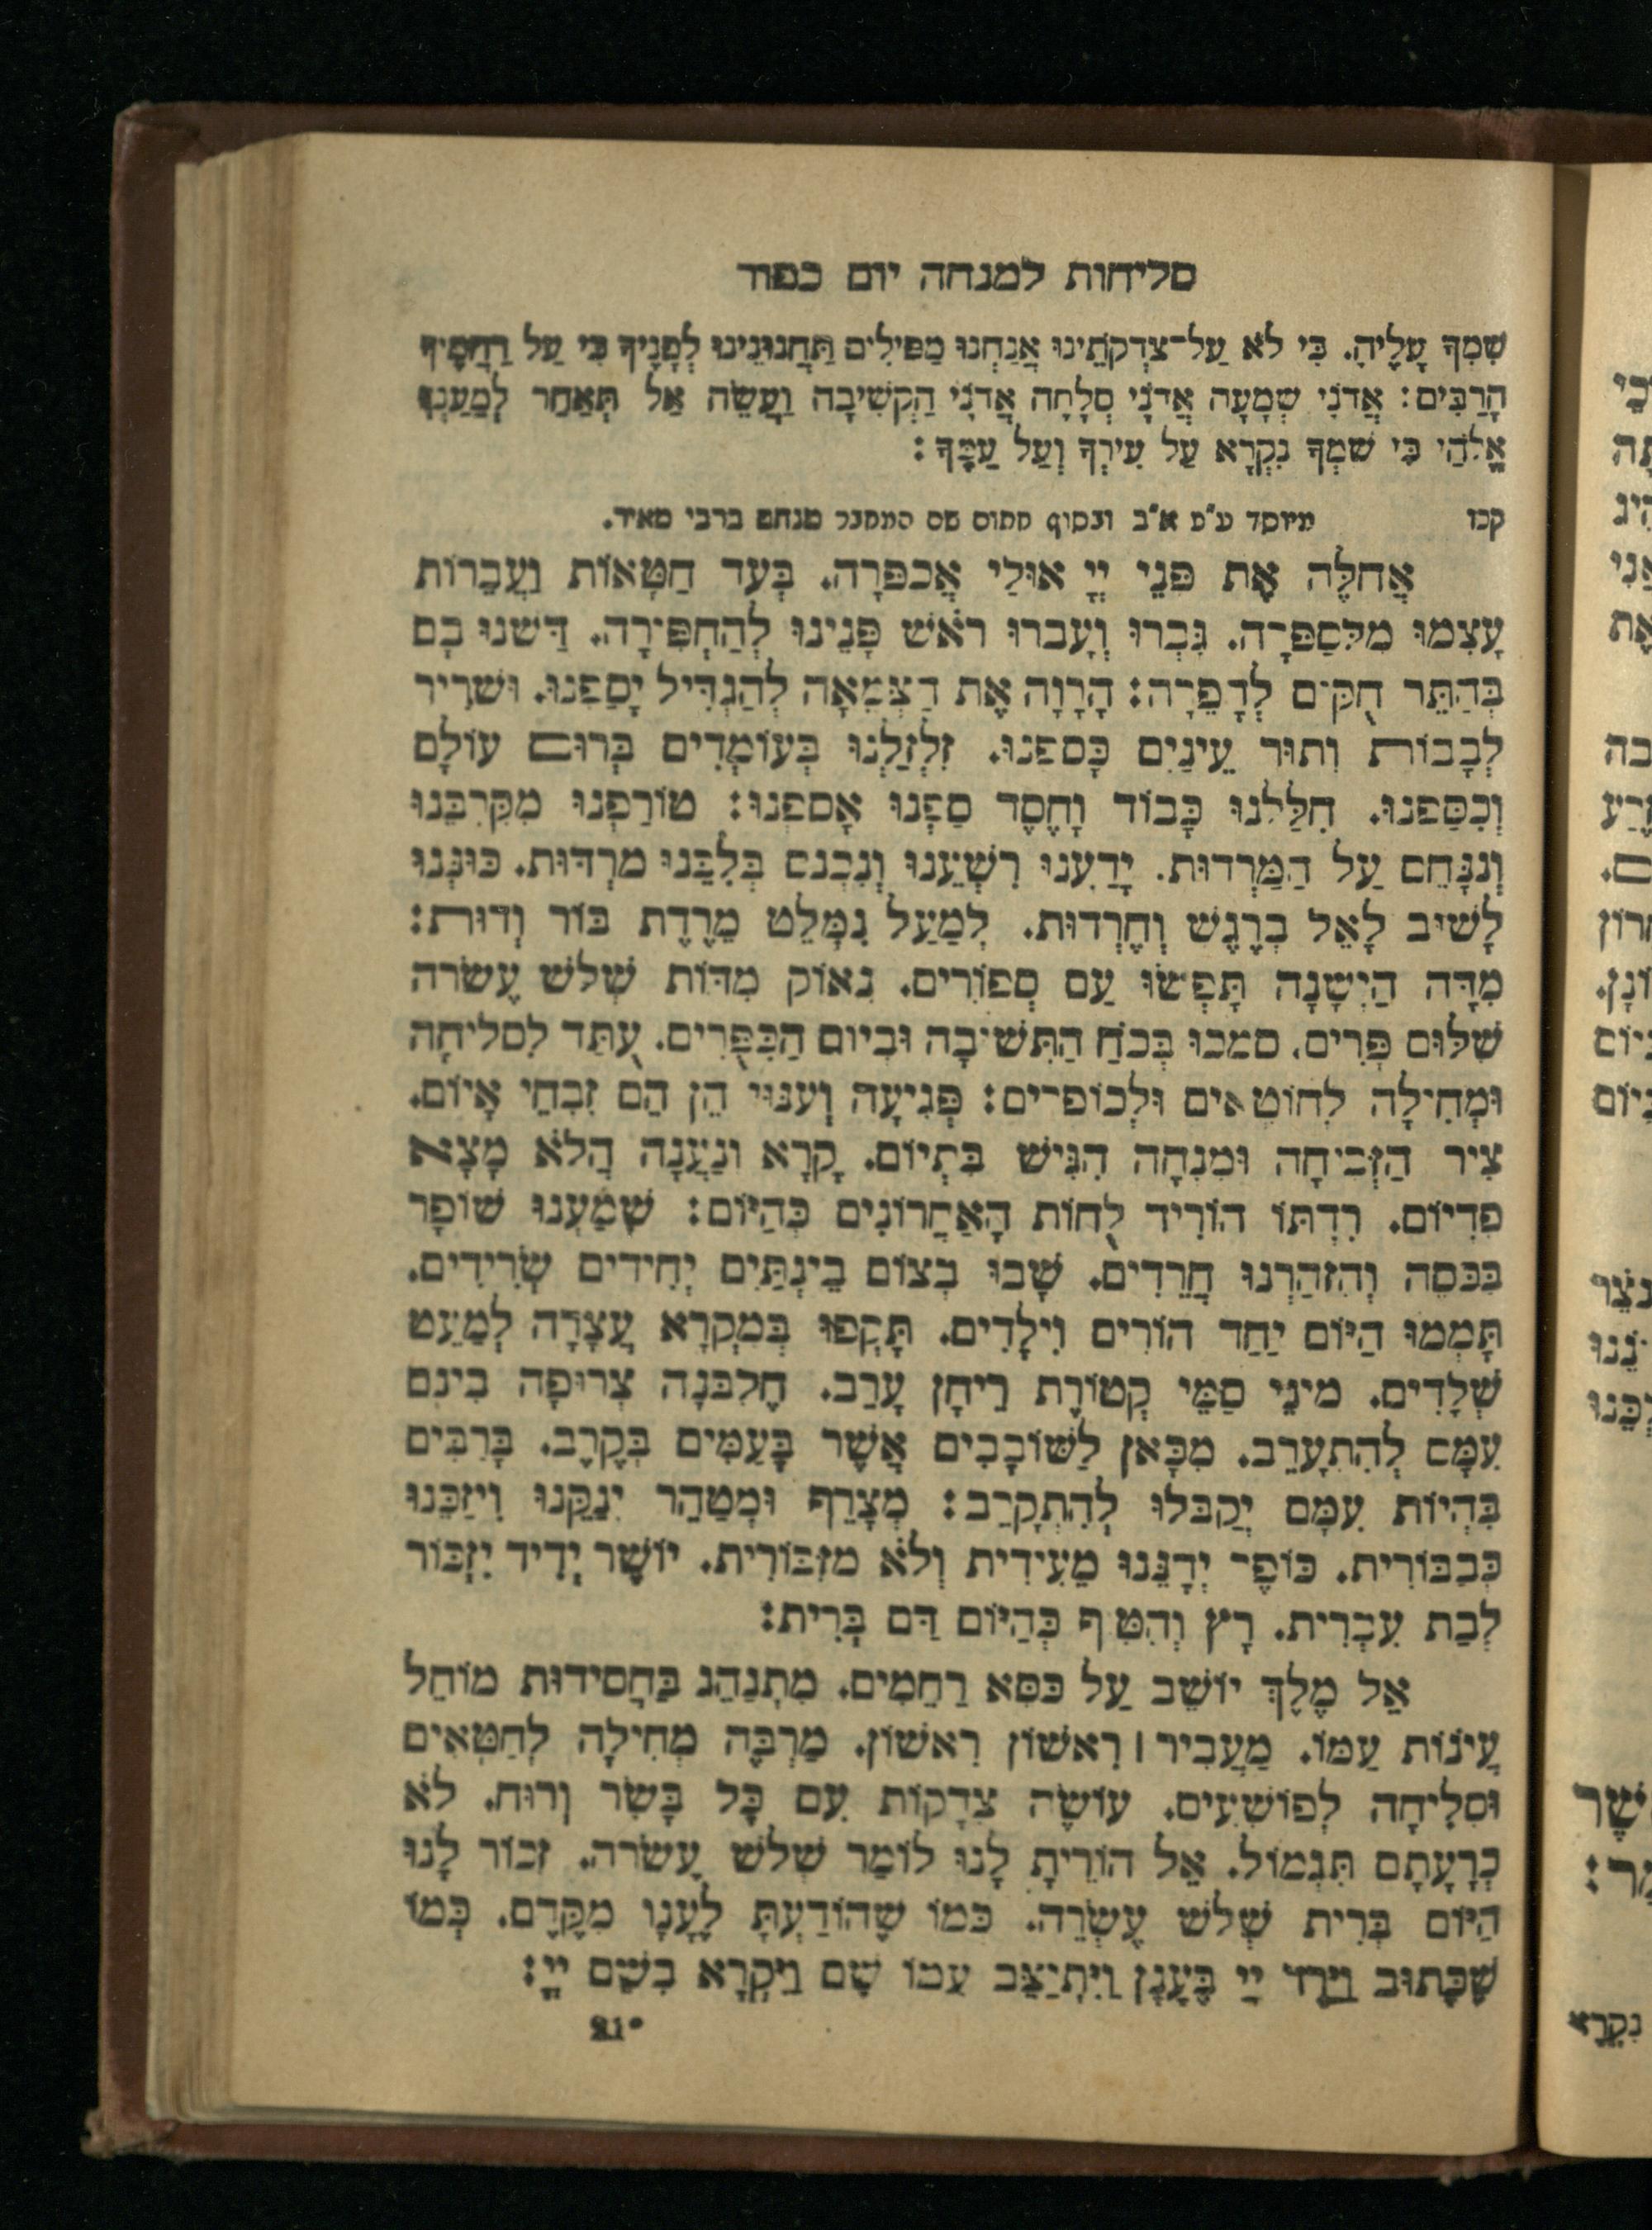 סליחות למנחה יום כפור
שִׁמְךָ עָלֶיהָ. כִּי לֹא עַל־צִדְקֹתֵינוּ אֲנַחְנוּ מַפִּילִים תַּחֲנוּנֵינוּ לְפָנֶיךָ כִּי עַל רַחֲמֶיךָ
הָרַבִּים: אֲדֹנָי שְׁמָעָה אֲדֹנָי סְלָחָה אֲדֹנָי הַקְשִׁיבָה וַעֲשֵׂה אַל תְּאַחַר לְמַעַנְךָ
אֱלֹהַי כִּי שִׁמְךָ נִקְרָא עַל עִירְךָ וְעַל עַמֶּךָ:
קכו מיוסד ע״פ א״ב ובסוף חתום שם המחבר מנחם ברבי מאיר.
אֲחַלֶּה אֶת פְּנֵי יְיָ אוּלַי אֲכַפְּרָה. בְּעַד חַטָּאוֹת וַעֲבֵרוֹת
עָצְמוּ מִלְּסַפְּרָה. גָּבְרוּ וְעָבְרוּ רֹאשׁ פָּנֵינוּ לְהַחְפִּירָה. דַּשְׁנוּ בָם
בְּהַתֵּר חֻקִּים לְהָפֵרָה: הָרָוָה אֶת הַצְּמֵאָה לְהַגְדִּיל יָסַפְנוּ. וּשְׁרִיר
לְבָבוֹת וְתוּר עֵינַיִם כָּסַפְנוּ. זִלְזַלְנוּ בְּעוֹמְדִים בְּרוּם עוֹלָם
וְכִסַּפְנוּ. חִלַּלְנוּ כָּבוֹד וָחֶסֶד סַפְנוּ אָסַפְנוּ: טוֹרַפְנוּ מִקִּרְבֵּנוּ
וְנִנָּחֵם עַל הַמַּרְדוּת. יָדַעְנוּ רִשְׁעֵנוּ וְנִכְנַס בְּלִבֵּנוּ מַרְדּוּת. כּוֹנְנוּ
לָשׁוּב לָאֵל בְּרֶגֶשׁ וְחֶרְדוּת. לְמַעַל נִמָּלֵט מֵרֶדֶת בּוֹר וְדוּת:
מִדָּה הַיְשָׁנָה תָּפְשׂוּ עַם סְפוּרִים. נִאוּק מִדּוֹת שְׁלֹשׁ עֶשְׂרֵה
שִׁלּוּם פָּרִים. סָמְכוּ בְּכֹחַ הַתְּשׁוּבָה וּבְיוֹם הַכִּפֻּרִים. עֻתַּד לִסְלִיחָה
וּמְחִילָה לְחוֹטְאִים וּלְכוֹפְרִים: פְּגִיעָה וְעִנּוּי הֵן הֵם זִבְחֵי אָיוֹם.
צִיר הַזְּבִיחָה וּמִנְחָה הִגִּישׁ בְּתִיוֹם. קָרָא וְנַעֲנָה הֲלֹא מָצָא
פִּדְיוֹם. רִדְתּוֹ הוֹרִיד לֻחוֹת הָאַחֲרוֹנִים כְּהַיּוֹם: שָׁמַעְנוּ שׁוֹפָר
בַּכֵּסֶה וְהִזְהַרְנוּ חֲרֵדִים. שָׁבוּ בְצוֹם בֵּינְתַיִם יְחִידִים שְׂרִידִים.
תָּמְמוּ הַיּוֹם יַחַד הוֹרִים וִילָדִים. תָּקְפוּ בְּמִקְרָא עֲצָרָה לְמַעֵט
שְׁלָדִים. מִינֵי סַמֵּי קְטוֹרֶת רֵיחָן עָרַב. חֶלְבְּנָה צְרוּפָה בֵינָם
עִמָּם לְהִתְעָרֵב. מִכָּאן לַשּׁוֹכְבִים אֲשֶׁר בָּעַמִּים בְּקֶרֶב. בָּרִבִּים
בִּהְיוֹת עִמָּם יְקַבְּלוּ לְהִתְקָרֵב: מְצָרֵף וּמְטַהֵר יְנַקֵּנוּ וִיזַכֵּנוּ
כְּבְבּוֹרִית. כּוֹפֶר יְדָנֵנוּ מֵעִידִית וְלֹא מִזִּבּוֹרִית. יוֹשֶׁר יְדִיד יִזְכּוֹר
לְבַת עִבְרִית. רָץ וְהִטִּיף כְּהַיּוֹם דַּם בְּרִית:
אֵל מֶלֶךְ יוֹשֵׁב עַל כִּסֵּא רַחֲמִים. מִתְנַהֵג בַּחֲסִידוּת מוֹחֵל
עֲוֹנוֹת עַמּוֹ. מַעֲבִיר | רִאשׁוֹן רִאשׁוֹן. מַרְבֶּה מְחִילָה לְחַטָּאִים
וּסְלִיחָה לְפוֹשְׁעִים. עוֹשֶׂה צְדָקוֹת עִם כָּל בָּשָׂר וְרוּחַ. לֹא
כְרָעָתָם תִּגְמוֹל. אֵל הוֹרֵיתָ לָנוּ לוֹמַר שְׁלֹשׁ עֶשְׂרֵה. זְכוֹר לָנוּ
הַיּוֹם בְּרִית שְׁלֹשׁ עֶשְׂרֵה. כְּמוֹ שֶׁהוֹדַעְתָּ לֶעָנָו מִקֶּדֶם. כְּמוֹ
שֶׁכָּתוּב וַיֵּרֶד יְיָ בֶּעָנָן וַיִּתְיַצֵּב עִמּוֹ שָׁם וַיִּקְרָא בְשֵׁם יְיָ:
21*